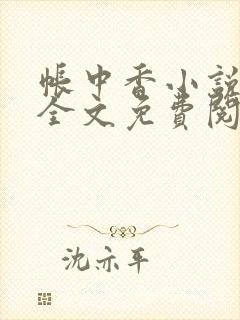 帳中香小說
全文免費閱
沈亦平